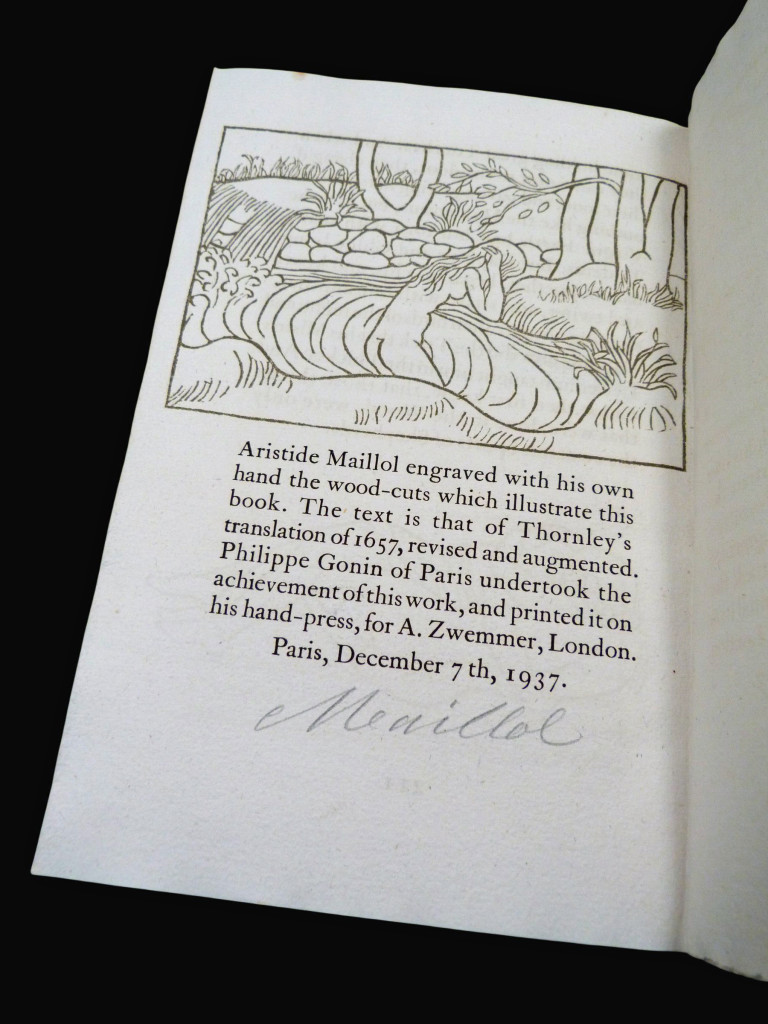 Aristide Maillol engraved with his own
hand the wood-cuts which illustrate this
book. The text is that of Thornley's
translation of 1657, revised and augmented.
Philippe Gonin of Paris undertook the
achievement of this work, and printed it on
his hand-press, for A. Zwemmer, London.
Paris, December 7 th, 1937.
Maillol